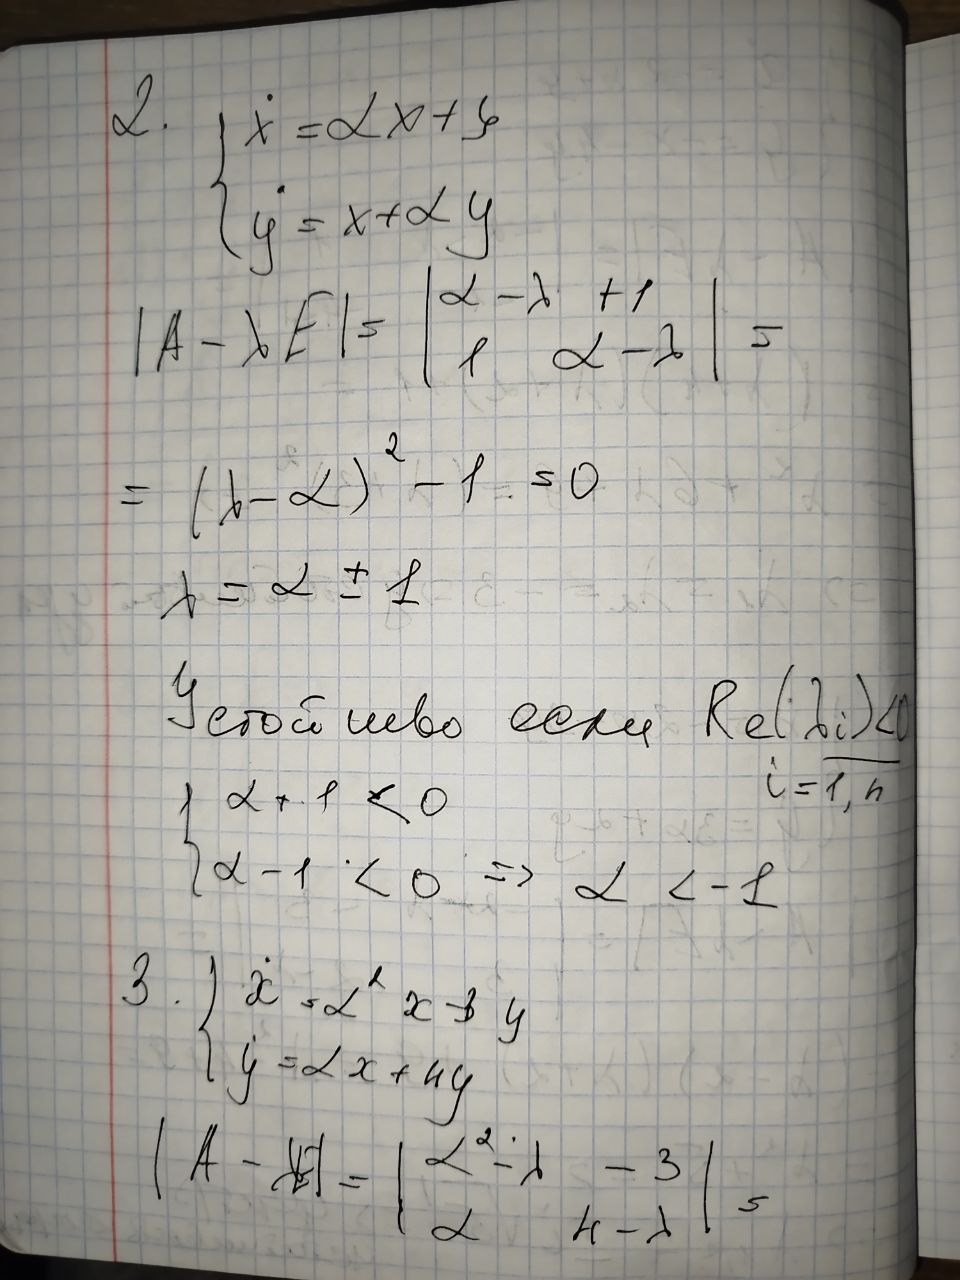 2. { ẋ = αx + y
ẏ = x + αy
|A - λE| = | α - λ +1
1 α - λ | =
= (λ - α)² - 1 = 0
λ = α ± 1
Устойчиво если Re(λi) < 0
i = 1, n
{ α + 1 < 0
α - 1 < 0 => α < -1
3. { ẋ = α² x - 3 y
ẏ = αx + 4y
|A - λE| = | α² - λ - 3
α 4 - λ | =